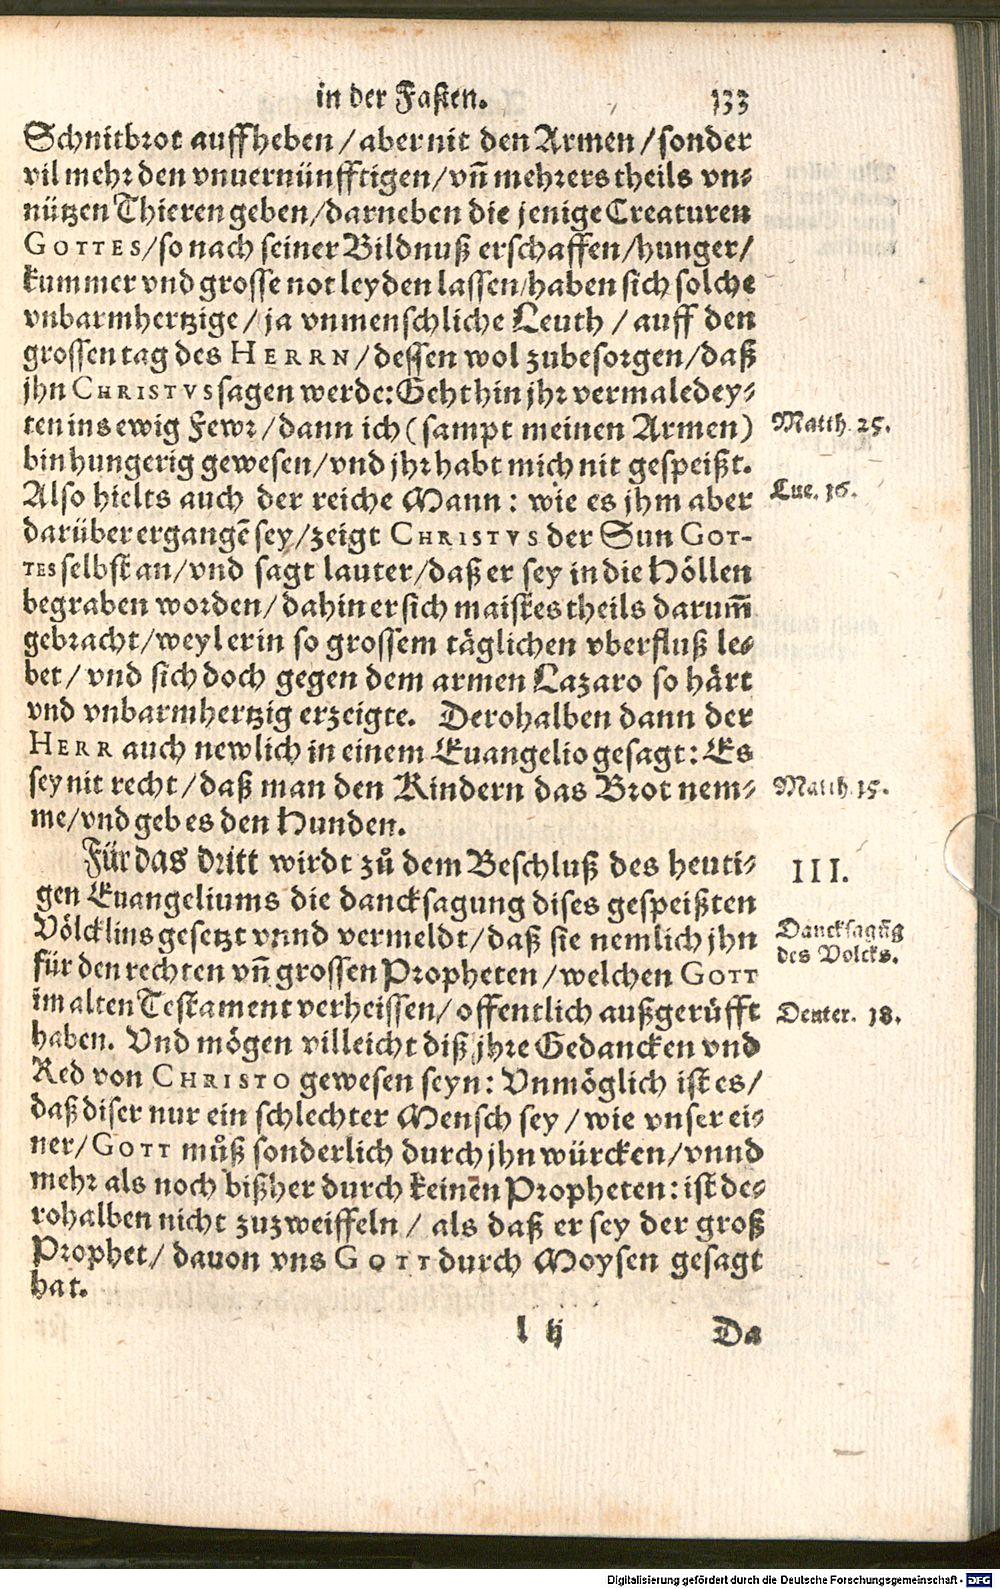 in der Fasten. 133
Schnitbrot auffheben / aber nit den Armen / sonder
vil mehr den vnuernünfftigen / vn̄ mehrers theils vn⸗
nützen Thieren geben / darneben die jenige Creaturen
GOTTES / so nach seiner Bildnuß erschaffen / hunger /
kummer vnd grosse not leyden lassen / haben sich solche
vnbarmhertzige / ja vnmenschliche Leuth / auff den
grossen tag des HERRN / dessen wol zubesorgen / daß
jhn CHRISTVS sagen werde: Geht hin jhr vermaledey⸗
ten ins ewig Fewr / dann ich (sampt meinen Armen)
Matth. 25.
bin hungerig gewesen / vnd jhr habt mich nit gespeißt.
Also hielts auch der reiche Mann: wie es jhm aber
Luc. 16.
darüber ergangē sey / zeigt CHRISTVS der Sun GOT-
TES selbst an / vnd sagt lauter / daß er sey in die Höllen
begraben worden / dahin er sich maistes theils darum̄
gebracht / weyl er in so grossem täglichen vberfluß le⸗
bet / vnd sich doch gegen dem armen Lazaro so härt
vnd vnbarmhertzig erzeigte. Derohalben dann der
HERR auch newlich in einem Euangelio gesagt: Es
sey nit recht / daß man den Kindern das Brot nem⸗
Matth. 15.
me / vnd geb es den Hunden.
Für das dritt wirdt zů dem Beschluß des heuti⸗
III.
gen Euangeliums die dancksagung dises gespeißten
Völcklins gesetzt vnnd vermeldt / daß sie nemlich jhn
Dancksagūg
des Volcks.
für den rechten vn̄ grossen Propheten / welchen GOTT
im alten Testament verheissen / offentlich außgerüfft
Deuter. 18.
haben. Vnd mögen villeicht diß jhre Gedancken vnd
Red von CHRISTO gewesen seyn: Vnmöglich ist es /
daß diser nur ein schlechter Mensch sey / wie vnser ei⸗
ner / GOTT můß sonderlich durch jhn würcken / vnnd
mehr als noch bißher durch keinen Propheten: ist de⸗
rohalben nicht zuzweiffeln / als daß er sey der groß
Prophet / dauon vns GOTT durch Moysen gesagt
hat.
l ij Da
Digitalisierung gefördert durch die Deutsche Forschungsgemeinschaft - DFG